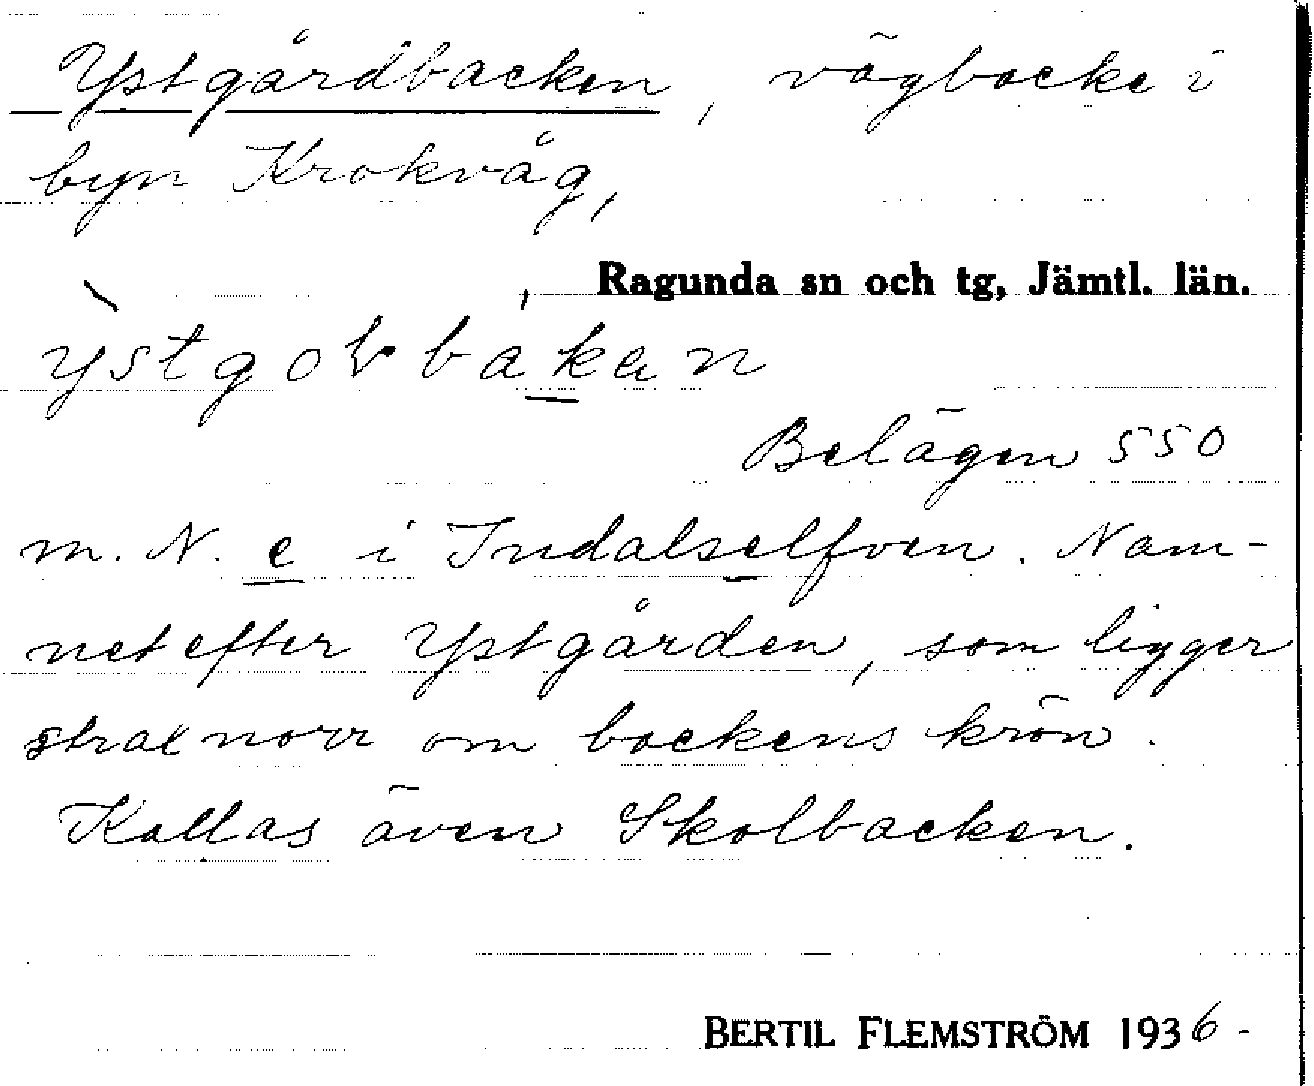 Ystgårdbacken, vägbacke i
byn Krokvåg,
, Ragunda sn och tg, Jämtl. län.
Belägen 550
m. N. e i Indalselfven. Nam-
net efter Ystgården, som ligger
strax norr om backens krön.
Kallas även Skolbacken.
BERTIL FLEMSTRÖM 1936 -